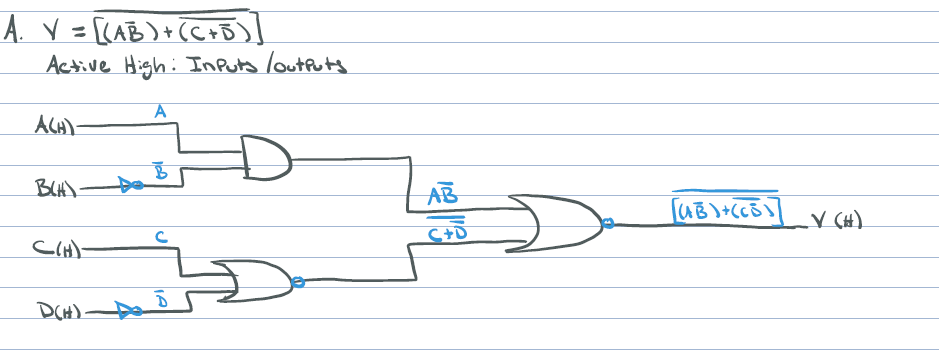 A. V = [(AB̅)+(C+D̅)̅]̅
Active High: Inputs/outputs
A(H) A
B(H) B̅
AB̅
C+D̅̅
[(AB̅)+(CD̅)̅]̅ V(H)
C(H) C
D(H) D̅